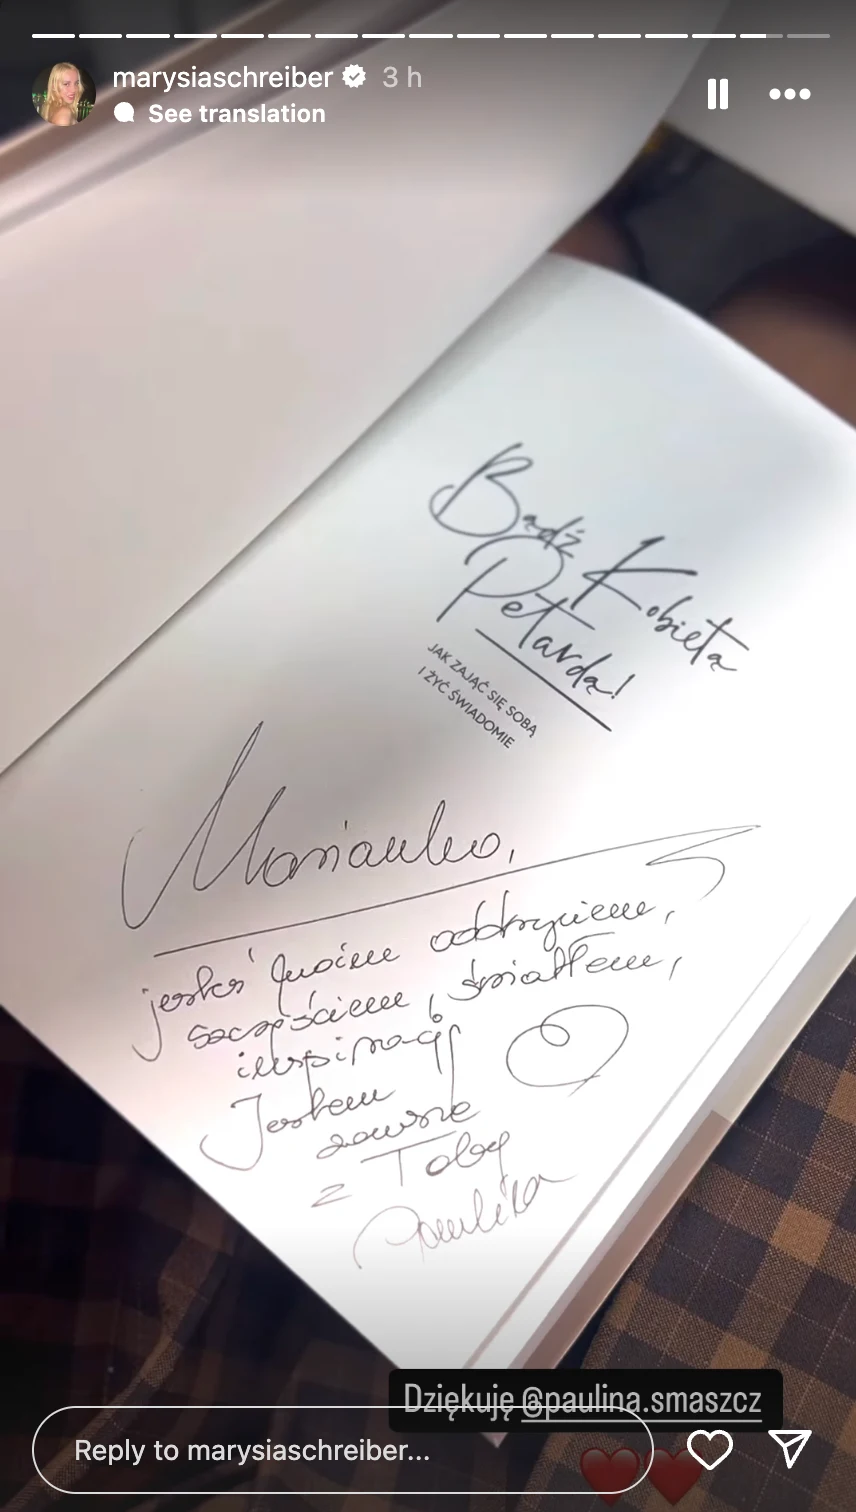 marysiaschreiber 3 h
See translation
Bądź Kobietą
Petardą!
JAK ZAJĄĆ SIĘ SOBĄ
I ŻYĆ ŚWIADOMIE
Marianko,
jesteś moim odkryciem,
szczęściem, światłem,
inspiracją
Jestem
zawsze
z Tobą
Paulina
Dziękuję @paulina.smaszcz
Reply to marysiaschreiber...